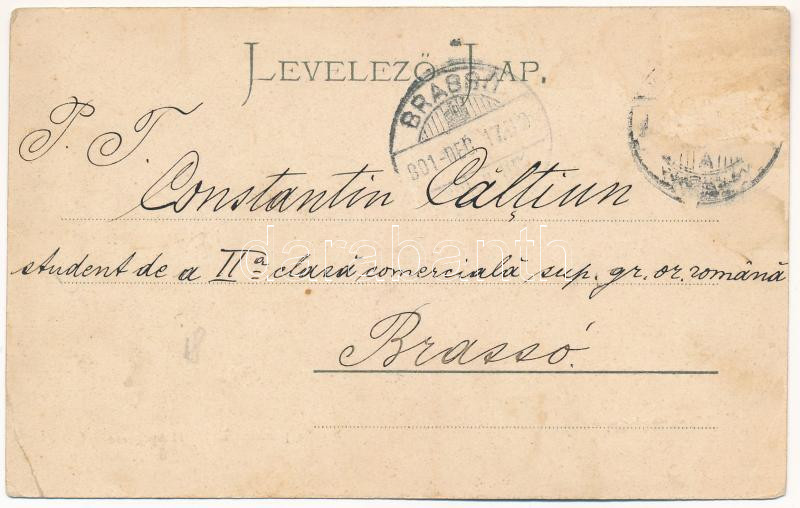 LEVELEZŐ LAP.
BRASSÓ
901 DEC. 17.
P. T.
Constantin Călțiun
student de a IIª clasă comercială sup. gr. or. română
Brassó.
darabanth.com